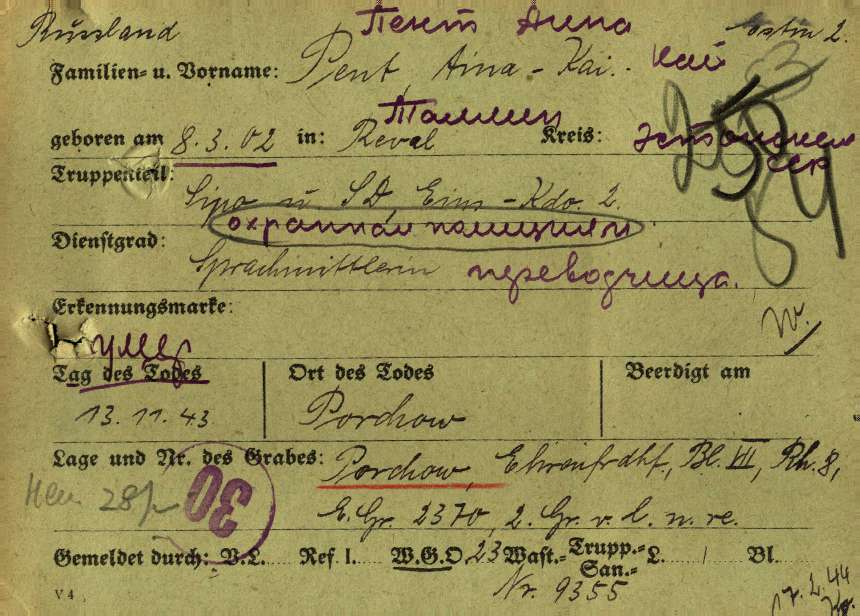 Russland Пент Анна
Familien- u. Vorname: Pent, Aina-Kai. Кай
geboren am 8.3.02 in: Reval Таллин Kreis: Эстонская ССР
Truppenteil: Sipo u SD, Eins-Kdo. 2.
охранная полиция
Dienstgrad: Sprachmittlerin переводчица.
Erkennungsmarke:
умер
Tag des Todes Ort des Todes Beerdigt am
13.11.43 Porchow
Lage und Nr. des Grabes: Porchow, Ehrenfrdhf, Bl. VII, Rh. 8,
30
E. Gr. 2370, 2. Gr. v. l. n. re.
Gemeldet durch: V.L. Ref. I. W.G.O. 23 Wast.- Trupp.- San.- L. / Bl.
Nr. 9355
V 4
17.2.44